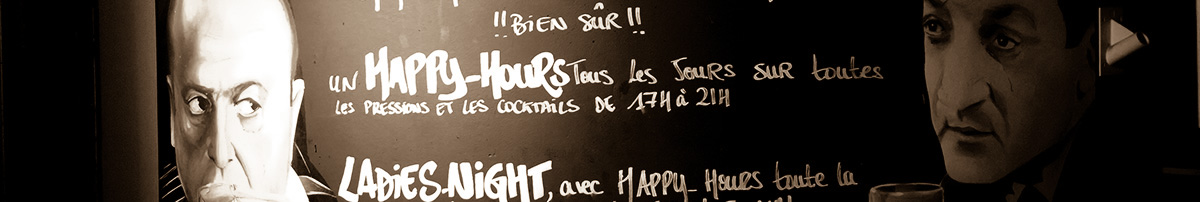 !!BiEN SÛR!!
UN HAPPY-HOURS TOUS LES JOURS SUR toutes
LES PRESSIONS ET LES COCKTAILS DE 17H à 21H
LADiES-NiGHT, avec HAPPY-HOURS toute la